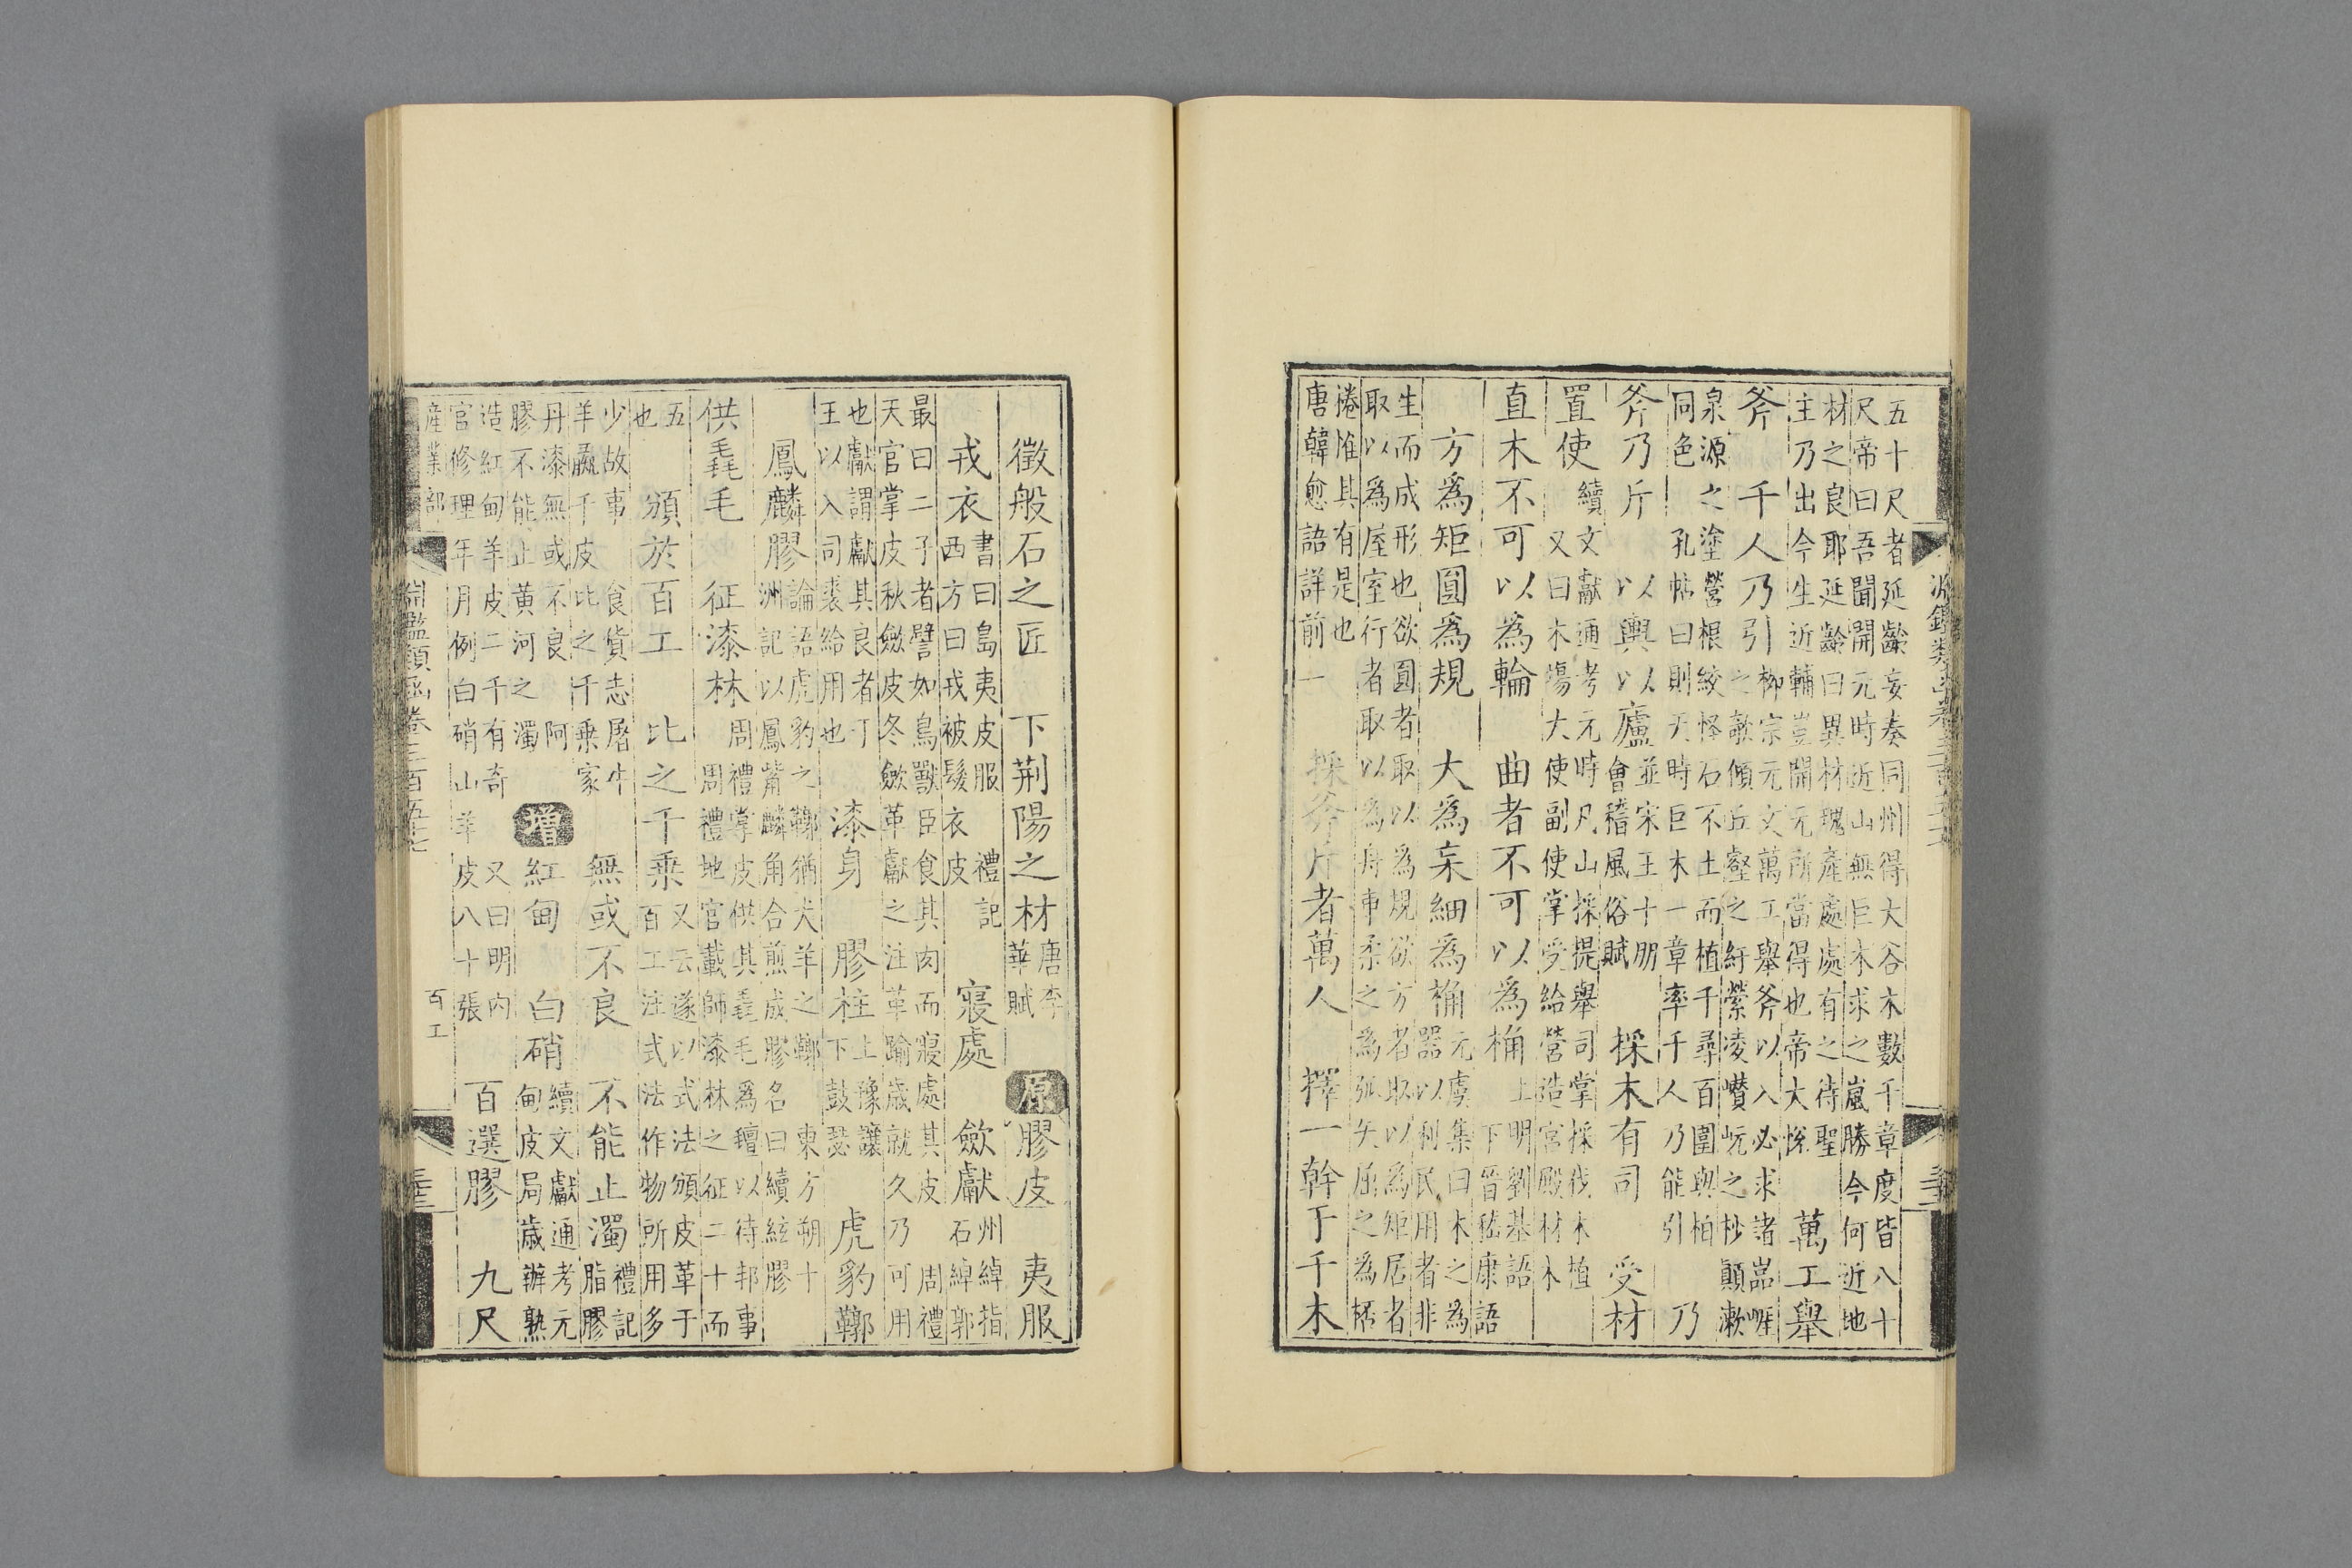 五十尺者延齡妄奏同州得大谷木數千章度皆八十
尺帝曰吾聞開元時近山無巨木求之嵐勝今何近地
材之良耶延齡曰異材瑰產處處有之待聖
主乃出今生近輔豈開元所當得也帝大悅
萬工舉
斧 千人乃引
柳宗元文萬工舉斧以入必求諸嵓崕
之欹傾丘壑之紆縈凌巑岏之杪顛漱
泉源之塗營根絞怪石不土而植千尋百圍與柏
同色 孔帖曰則天時巨木一章率千人乃能引
乃
斧乃斤 以輿以廬
並宋王十朋
會稽風俗賦
採木有司 受材
置使
續文獻通考元時凡山採提舉司掌採伐木植
又曰木場大使副使掌受給營造宮殿材木
直木不可以為輪 曲者不可以為桷
上明劉基語
下晉嵇康語
方為矩圓為規 大為杗細為桷
元虞集曰木之為
器以利民用者非
生而成形也欲圓者取以為規欲方者取以為矩居者
取以為屋室行者取以為舟車柔之為弧矢屈之為桮
棬惟其有是也
唐韓愈語詳前一
採斧斤者萬人 擇一幹于千木
徵般石之匠 下荆陽之材
唐李
華賦
原 膠皮 夷服
戎衣
書曰島夷皮服
西方曰戎被髮衣皮
禮記
寢處 歛獻
州綽指
石綽郭
最曰二子者譬如鳥獸臣食其肉而寢處其皮 周禮
天官掌皮秋歛皮冬歛革獻之注革踰歲就久乃可用
也獻謂獻其良者丁
王以入司裘給用也
漆身 膠柱
上豫讓
下鼓瑟
虎豹鞹
鳳麟膠
論語虎豹之鞹猶犬羊之鞹 東方朔十
洲記以鳳觜麟角合煎成膠名曰續絃膠
供毳毛 征漆林
周禮掌皮供其毳毛為氊以待邦事
周禮地官載師漆林之征二十而
五
也
頒於百工 比之千乘
又云遂以式法頒皮革于
百工注式法作物所用多
少故事 食貨志屠牛
羊彘千皮比之千乘家
無或不良 不能止濁
禮記
脂膠
丹漆無或不良 阿
膠不能止黃河之濁
增 紅甸 白硝
續文獻通考元
甸皮局歲辦熟
造紅甸羊皮二千有奇 又曰明內
官修理年月例白硝山羊皮八十張
百選膠 九尺
淵鑑類函卷三百五十七
產業部
百工